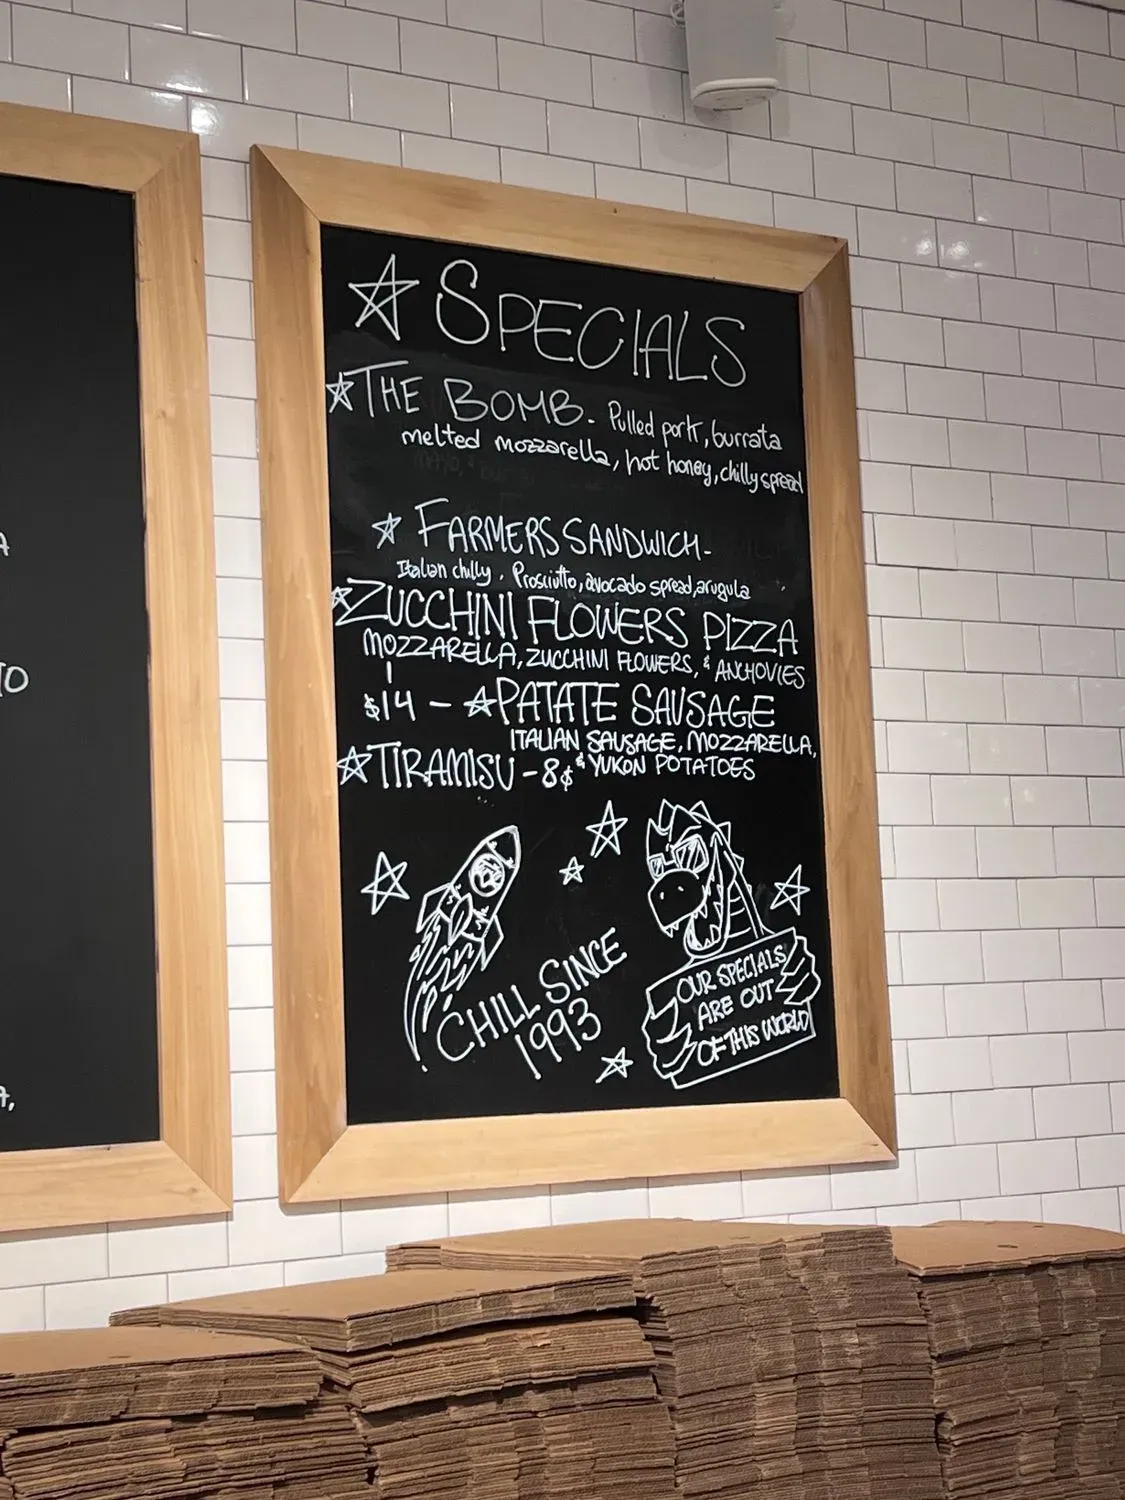 SPECIALS
THE BOMB - Pulled pork, burrata
melted mozzarella, hot honey, chilly spread
FARMERS SANDWICH -
Italian chilly, Prosciutto, avocado spread, arugula
ZUCCHINI FLOWERS PIZZA
MOZZARELLA, ZUCCHINI FLOWERS, & ANCHOVIES
$14 - PATATE SAUSAGE
ITALIAN SAUSAGE, MOZZARELLA,
& YUKON POTATOES
TIRAMISU - 8$
CHILL SINCE
1993
OUR SPECIALS
ARE OUT
OF THIS WORLD